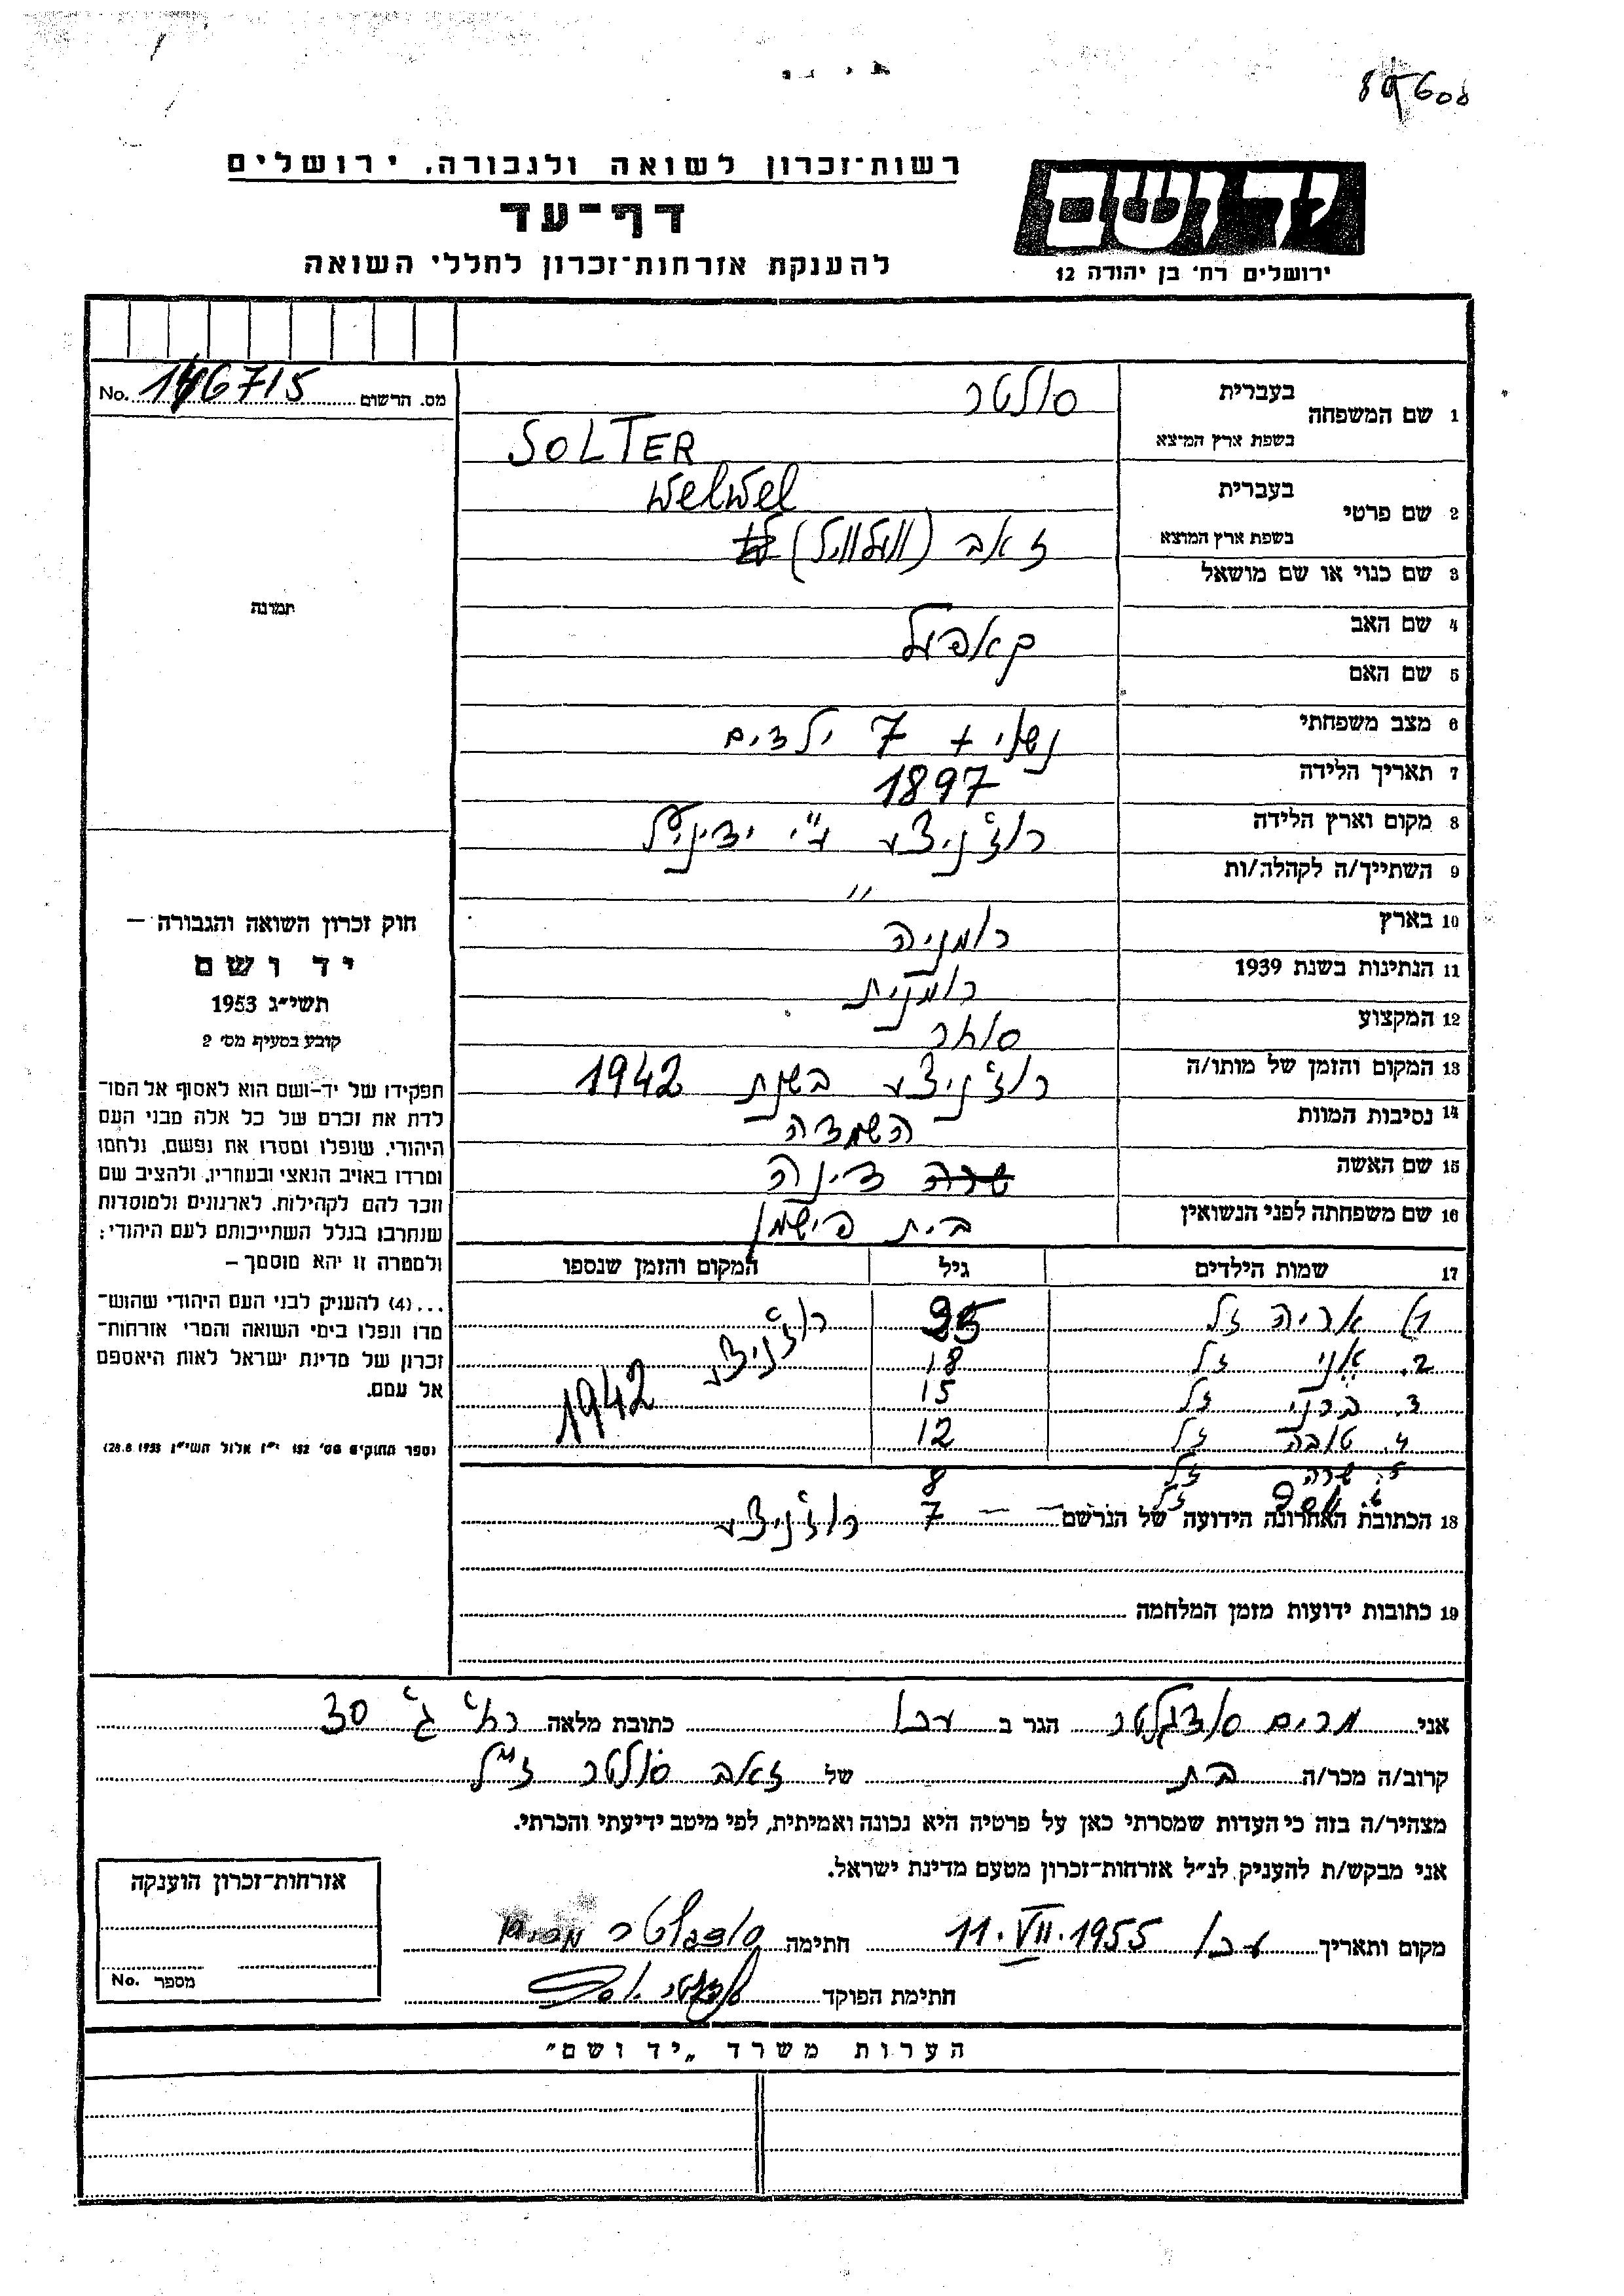 89600
רשות־זכרון לשואה ולגבורה, ירושלים
דף־עד
להענקת אזרחות־זכרון לחללי השואה
יד ושם
ירושלים רח' בן יהודה 12
No. 146715 מס. הרשום
תמונה
חוק זכרון השואה והגבורה –
יד ושם
תשי״ג 1953
קובע בסעיף מס' 2
תפקידו של יד–ושם הוא לאסוף אל המו־
לדת את זכרם של כל אלה מבני העם
היהודי, שנפלו ומסרו את נפשם, נלחמו
ומרדו באויב הנאצי ובעוזריו, ולהציב שם
וזכר להם לקהילות, לארגונים ולמוסדות
שנחרבו בגלל השתייכותם לעם היהודי;
ולמטרה זו יהא מוסמך –
...(4) להעניק לבני העם היהודי שהוש־
מדו ונפלו בימי השואה והמרי אזרחות־
זכרון של מדינת ישראל לאות היאספם
אל עמם.
(ספר החוקים מס' 132 י״ז אלול תשי״ג 28.8.1953)
1 שם המשפחה בעברית סולטר
בשפת ארץ המוצא SOLTER
2 שם פרטי בעברית Welwel
בשפת ארץ המוצא זאב (וועלוויל)
3 שם כנוי או שם מושאל
4 שם האב קאפיל
5 שם האם
6 מצב משפחתי נשוי + 7 ילדים
7 תאריך הלידה 1897
8 מקום וארץ הלידה רוז'ניצע ע"י
9 השתייך/ה לקהלה/ות "
10 בארץ רומניה
11 הנתינות בשנת 1939 רומנית
12 המקצוע סוחר
13 המקום והזמן של מותו/ה רוז'ניצע בשנת 1942
14 נסיבות המוות השמדה
15 שם האשה שרה דינה
16 שם משפחתה לפני הנשואין בית פישמן
17 שמות הילדים גיל המקום והזמן שנספו
1) אריה ז"ל 25 רוז'ניצע
2. אני ז"ל 18 1942
3. ברני ז"ל 15
4. טובה ז"ל 12
5. שרה ז"ל 8
6. ז"ל 7
18 הכתובת האחרונה הידועה של הנרשם רוז'ניצע
19 כתובות ידועות מזמן המלחמה
אני מרים סודגלטר הגר ב עכו כתובת מלאה רח' ג' 30
קרוב/ה מכר/ה בת של זאב סולטר ז"ל
מצהיר/ה בזה כי העדות שמסרתי כאן על פרטיה היא נכונה ואמיתית, לפי מיטב ידיעתי והכרתי.
אני מבקש/ת להעניק לנ״ל אזרחות־זכרון מטעם מדינת ישראל.
מקום ותאריך עכו 11.VII.1955 חתימה
חתימת הפוקד
אזרחות־זכרון הוענקה
No. מספר
הערות משרד „יד ושם"